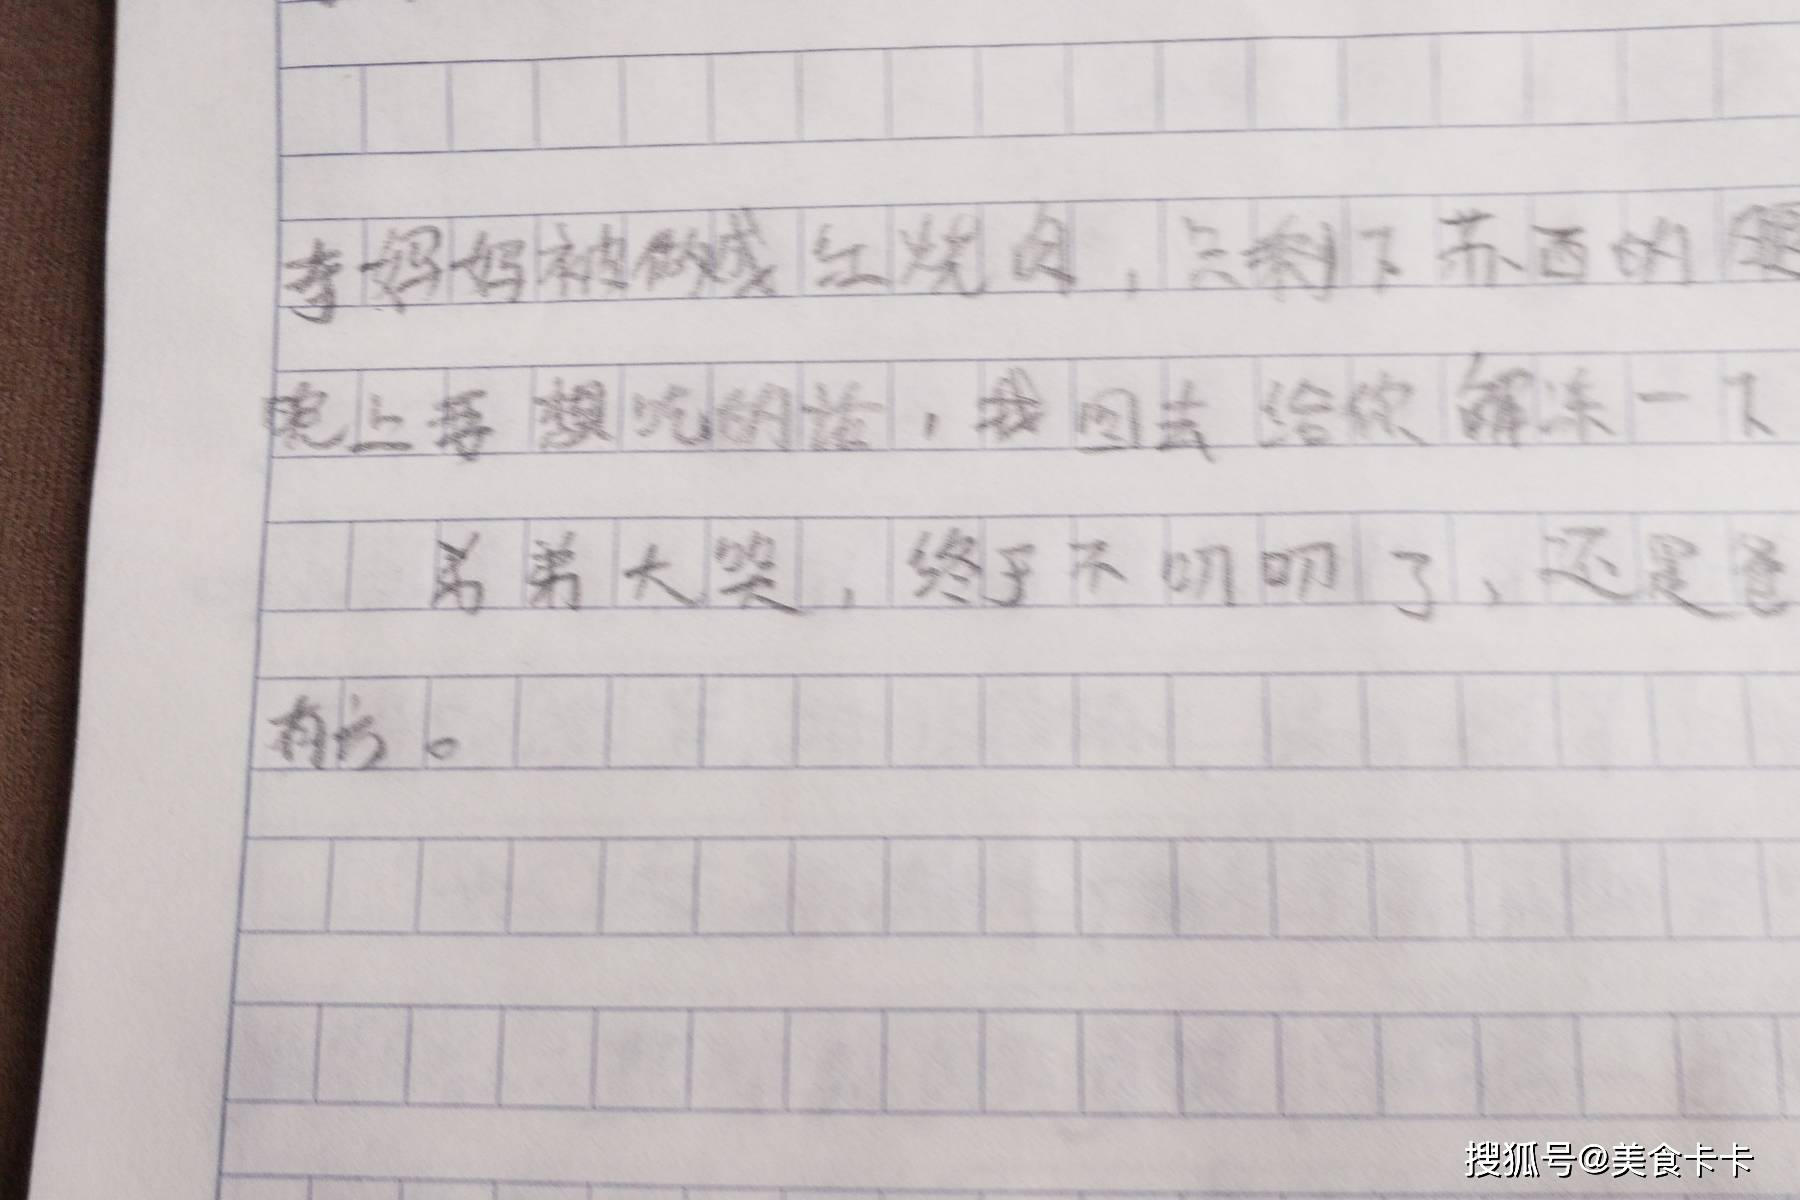 李妈妈被做成红烧肉，只剩下苏西的腿
晚上要想吃的话，我回去给你解冻一下
弟弟大哭，终于不叨叨了，还是爸
有方。
搜狐号@美食卡卡